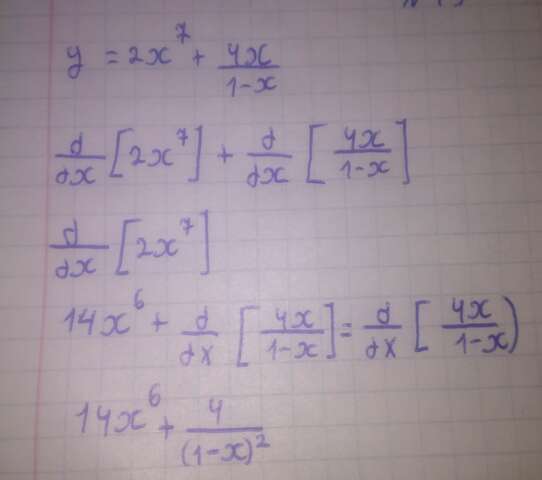 y = 2x⁷ + 4x/(1-x)
d/dx [2x⁷] + d/dx [4x/(1-x)]
d/dx [2x⁷]
14x⁶ + d/dx [4x/(1-x)] = d/dx [4x/(1-x))
14x⁶ + 4/(1-x)²